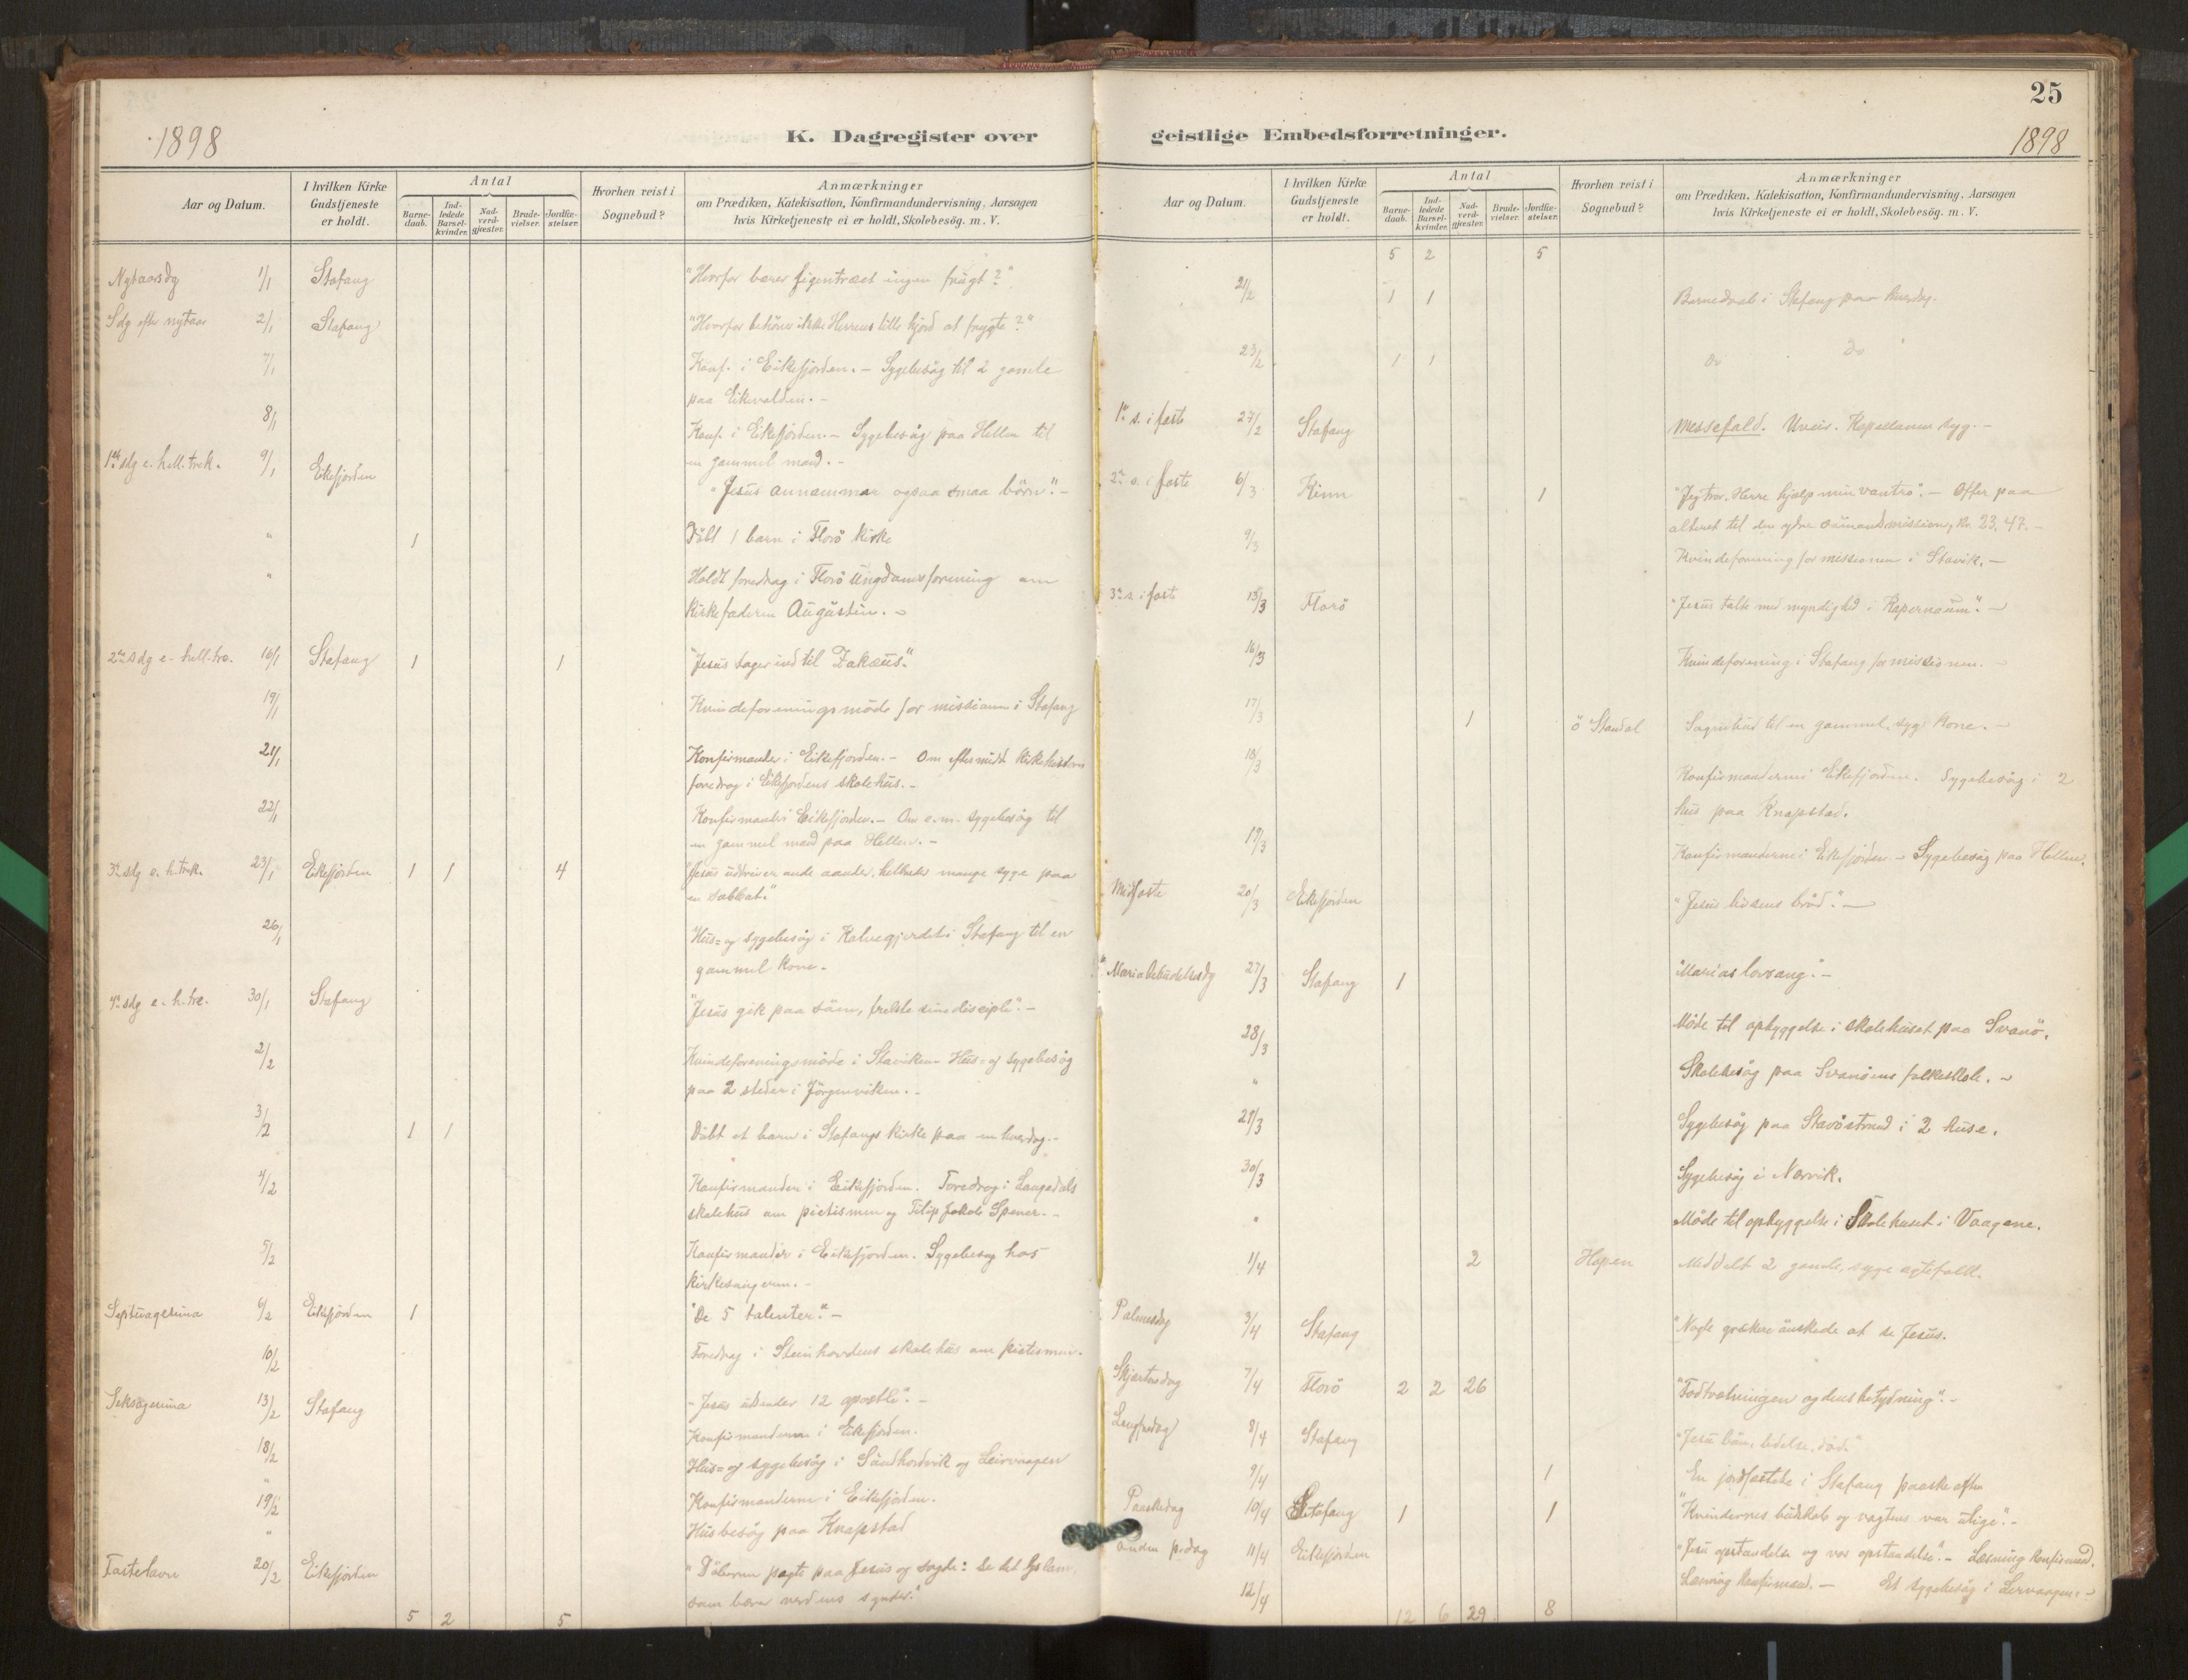 1898
K. Dagregister over
Aar og Datum.
I hvilken Kirke Gudstjeneste er holdt.
Antal
Barne-daab.
Ind-ledede Barsel-kvinder.
Nad-verd-gjæster.
Brude-vielser.
Jordfæ-stelser.
Hvorhen reist i Sognebud?
Anmærkninger
om Prædiken, Katekisation, Konfirmandundervisning, Aarsagen
hvis Kirketjeneste ei er holdt, Skolebesög. m. V.
Nytaarsdg 1/1 Stafang "Hvorfor bærer figentræet ingen frugt?"
Sdg efter nytaar 2/1 Stafang "Hvorfor behöver ikke Herrens lille hjord at frygte?"
7/1 Konf. i Eikefjorden. - Sygebesög til 2 gamle
paa Eikevolden. -
8/1 Konf. i Eikefjorden. - Sygebesög paa Hellen til
en gammel mand. -
1ste sdg e. hell. trek. 9/1 Eikefjorden "Jesus annammer ogsaa smaa börn". -
" 1 Döbt 1 barn i Florö kirke
" Holdt foredrag i Florö Ungdomsforening om
kirkefaderen Augustin. -
2den sdg e. hell. tre. 16/1 Stafang 1 1 "Jesus tager ind til Zakæus."
19/1 Kvindeforeningsmöde for missionen i Stafang
21/1 Konfirmander i Eikefjorden. - Om eftermidd. kirkehistorie
foredrag i Eikefjordens skolehus. -
22/1 Konfirmander i Eikefjorden. - Om e.m. sygebesög til
en gammel mand paa Hellen. -
3die sdg e. h. trek. 23/1 Eikefjorden 1 1 4 "Jesus uddriver onde aander, helbreder mange syge paa
en sabbat."
26/1 Hus= og sygebesög i Kalvegjerdet i Stafang til en
gammel kone. -
4de sdg e. h. tre. 30/1 Stafang "Jesus gik paa söen, frelste sine disciple". -
2/2 Kvindeforeningsmöde i Staviken - Hus- og sygebesög
paa 2 steder i Jörgenviken. -
3/2 1 1 Döbt et barn i Stafangs kirke paa en hverdag. -
4/2 Konfirmander i Eikefjorden. Foredrag i Langedals
skolehus om pietismen og Filip Jakob Spener. -
5/2 Konfirmander i Eikefjorden. Sygebesög hos
kirkesangeren. -
Septuagesima 6/2 Eikefjorden 1 "De 5 talenter." -
10/2 Foredrag i Steinhovdens skolehus om pietismen.
Seksagesima 13/2 Stafang "Jesus udsender 12 apostle". -
Konfirmanderne i Eikefjorden.
18/2 Hus= og sygebesög i Sandhordvik og Leirvaagen
19/2 Konfirmanderne i Eikefjorden.
" Husbesög paa Knapstad
Fastelavn 20/2 Eikefjorden "Döberen pegte paa Jesus og sagde: Se det Gs lam,
som bærer verdens synder."
5 2 5
25
geistlige Embedsforretninger.
1898
Aar og Datum.
I hvilken Kirke Gudstjeneste er holdt.
Antal
Barne-daab.
Ind-ledede Barsel-kvinder.
Nad-verd-gjæster.
Brude-vielser.
Jordfæ-stelser.
Hvorhen reist i Sognebud?
Anmærkninger
om Prædiken, Katekisation, Konfirmandundervisning, Aarsagen
hvis Kirketjeneste ei er holdt, Skolebesög. m. V.
5 2 5
21/2 1 1 Barnedaab i Stafang paa hverdag.
23/2 1 1 do do
1ste s. i faste 27/2 Stafang Messefald. Uveir. Kapellanen syg. -
2den s. i faste 6/3 Kinn 1 "Jeg tror, Herre hjælp min vantro". - Offer paa
alteret til den ydre sömandsmission, Kr. 23.47. -
9/3 Kvindeforening for missionen i Stavik. -
3die s. i faste 13/3 Florö "Jesus talte med myndighed i Kapernaum". -
16/3 Kvindeforening i Stafang for missionen. -
17/3 1 ö Standal Sognebud til en gammel, syg kone. -
18/3 Konfirmanderne i Eikefjorden. Sygebesög i 2
hus paa Knapstad.
19/3 Konfirmanderne i Eikefjorden. - Sygebesög paa Hellen.
Midfaste 20/3 Eikefjorden "Jesus livsens bröd". -
Maria Bebudelsesdg 27/3 Stafang 1 "Marias lovsang". -
28/3 Möde til opbyggelse i skolehuset paa Svanö.
" Skolebesög paa Svanöens folkeskole. -
29/3 Sygebesög paa Stavöstrand i 2 huse.
30/3 Sygebesög i Norvik.
" Möde til opbyggelse i Skolehuset i Vaagene.
1/4 2 Hopen Meddelt 2 gamle, syge ægtefolk.
Palmesdg 3/4 Stafang "Nogle grækere önskede at se Jesus.
Skjærtorsdag 7/4 Florö 2 2 26 "Fodtvætningen og dens betydning". -
Langfredag 8/4 Stafang "Jesu bön, lidelse, död."
9/4 1 En jordfæstelse i Stafang paaskeaften
Paaskedag 10/4 Stafang 1 1 "Kvindernes budskab og vagtens var ulige". -
Anden p.dag 11/4 Eikefjorden "Jesu opstandelse og vor opstandelse". - Læsning konfirmand.
12/4 Læsning konfirmand. - Et sygebesög i Lervaagen. -
12 6 29 8